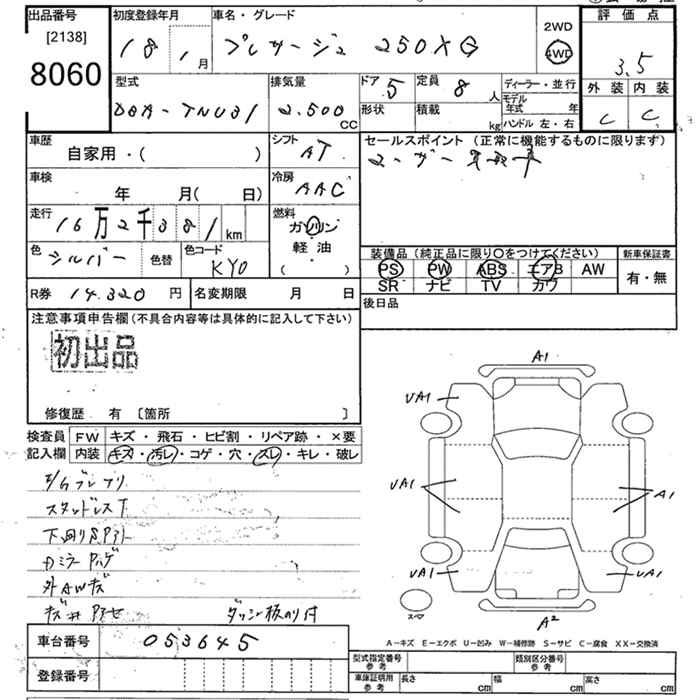 出品番号 初度登録年月 車名・グレード 2WD 評価点
[2138] 18 1月 プレサージュ 250XG 4WD 3.5
8060 外装 内装
型式 排気量 ドア 5 定員 8人 ディーラー・並行 C C
DBA-TNU31 2.500 CC 形状 積載 kg モデル年式 年
ハンドル 左・右
車歴 シフト セールスポイント (正常に機能するものに限ります)
自家用・( ) AT
車検 冷房
年 月( 日) AAC
走行 燃料
16万2千381km ガソリン
色 シルバー 色替 色コード KY0 軽油 装備品 (純品に限り○をつけてください) 新車保証書
( ) PS PW ABS エアB AW 有・無
R券 14.320 円 名変期限 月 日 SR ナビ TV カワ
後日品
注意事項申告欄(不具合内容等は具体的に記入して下さい)
初出品
修復歴 有 [箇所 ]
検査員 FW キズ・飛石・ヒビ割・リペア跡・×要
記入欄 内装 キズ・汚レ・コゲ・穴・スレ・キレ・破レ
スタッドレスT
外AWキズ
A1
UA1
UA1 A1
UA1 UA1
A2
車台番号 053645
登録番号
A-キズ E-エクボ U-凹み W-補修跡 S-サビ C-腐食 XX-交換済
型式指定番号 参考 類別区分番号 参考
車庫証明用 参考 長さ cm 幅 cm 高さ cm